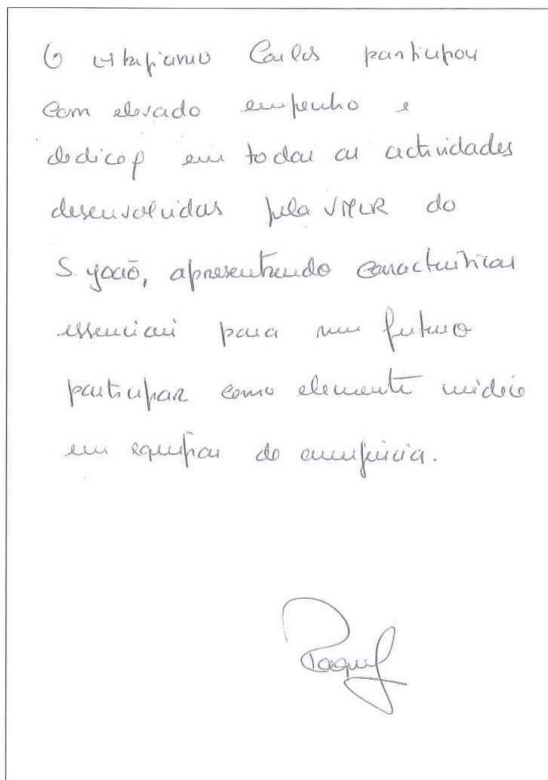 O estagiário Carlos participou
com elevado empenho e
dedicaç em todas as actividades
desenvolvidas pela VMER do
S. João, apresentando características
essenciais para num futuro
participar como elemento médico
em equipas de emergência.
Raquel